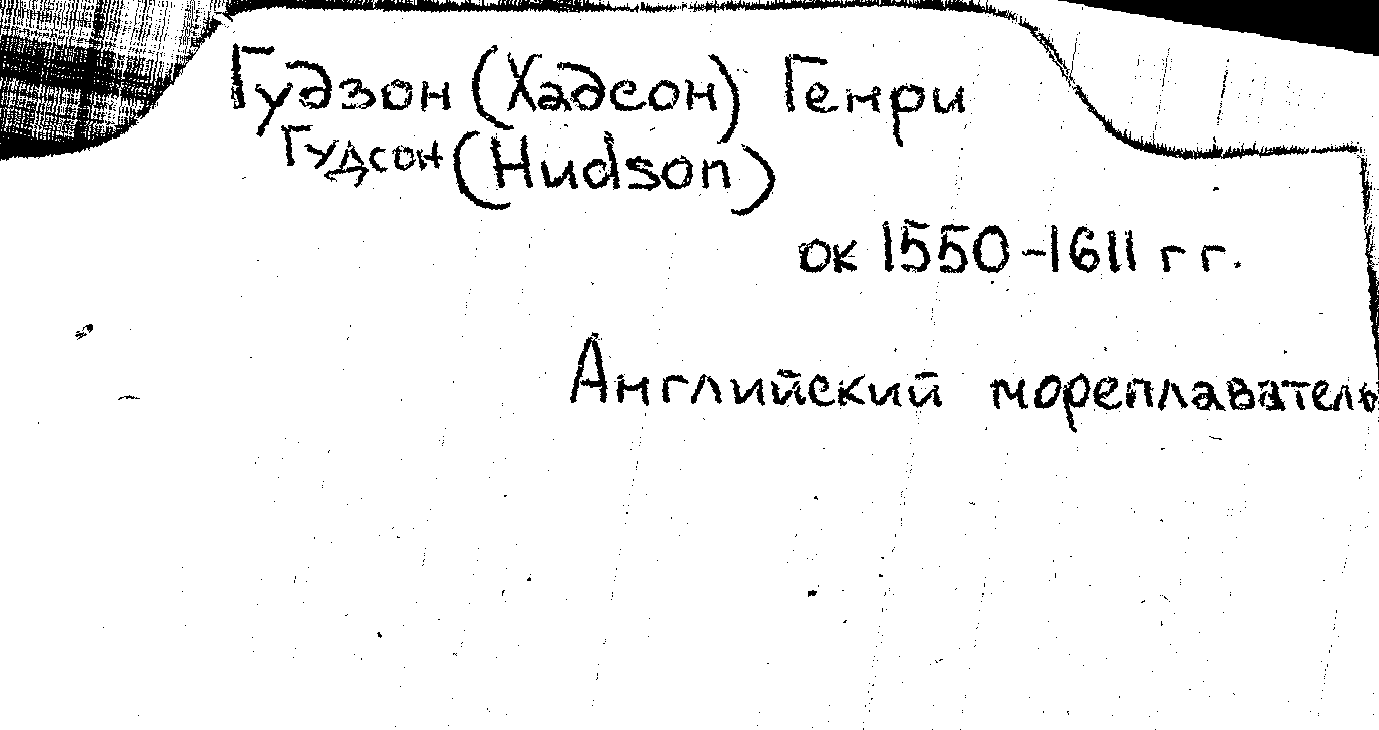 Гудзон (Хадсон) Генри
Гудсон (Hudson)
ок 1550-1611 г г.
Английский мореплаватель